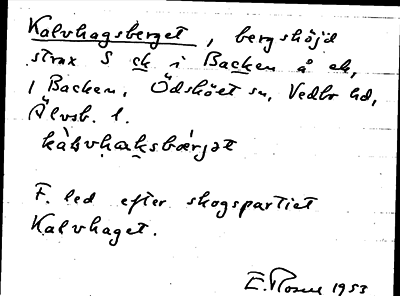 Kalvhagsberget, bergshöjd
strax S ck i Backen å ek,
1 Backen, Ödskölt sn, Vedbo hd,
Älvsb. l.
kàlvhaksbærjət
F. led efter skogspartiet
Kalvhaget.
E. Rosell 1953